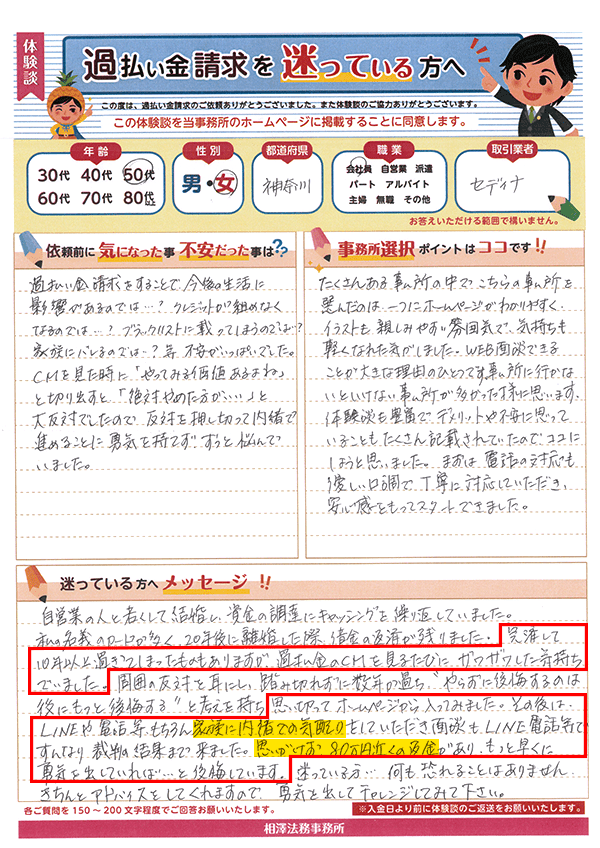 体験談
過払い金請求を迷っている方へ
この度は、過払い金請求のご依頼ありがとうございました。また体験談のご協力ありがとうございます。
この体験談を当事務所のホームページに掲載することに同意します。
年齢
30代 40代 50代
60代 70代 80代
性別
男・女
都道府県
神奈川
職業
会社員 自営業 派遣
パート アルバイト
主婦 無職 その他
取引業者
セディナ
お答えいただける範囲で構いません。
依頼前に気になった事 不安だった事は??
過払い金請求をすることで今後の生活に
影響があるのでは…? クレジットが組めなく
なるのでは…? ブラックリストに載ってしまうのでは…?
家族にバレるのでは…? 等 不安がいっぱいでした。
CMを見た時に「やってみる価値あるよね」
と切り出すと「絶対やめた方が…」と
大反対でしたので 反対を押し切って内緒で
進めることに勇気を持てず ずっと悩んで
いました。
事務所選択ポイントはココです!!
たくさんある事ム所の中で こちらの事ム所を
選んだのは 一つにホームページがわかりやすく、
イラストも親しみやすい雰囲気で、気持ちも
軽くなれた気がしました。WEB面談できる
ことが大きな理由のひとつです。事ム所に行かな
いといけない事ム所が多かった様に思います。
体験談も豊富でデメリットや不安に思って
いることもたくさん記載されていたのでココに
しようと思いました。まずは電話の対応も
優しい口調で丁寧に対応していただき、
安心感をもってスタートできました。
迷っている方へメッセージ!!
自営業の人と若くして結婚し、資金の調達にキャッシングを繰り返していました。
私の名義のカードが多く、20年後に離婚した際 借金の返済が残りました。完済して
10年以上過ぎてしまったものもありますが、過払い金のCMを見るたびに、ザワザワした気持ち
でいました。周囲の反対を耳にし、踏み切れずに数年が過ち "やらずに後悔するのは
後にもっと後悔する" と考えを持ち 思い切ってホームページから入ってみました。その後は、
LINEや電話等もちろん家族に内緒での気配りをしていただき面談もLINE電話等で
すんなり 裁判の結果まで来ました。思いがけず 80万円近くの返金があり、もっと早くに
勇気を出していれば…と後悔しています。迷っている方… 何も恐れることはありません
きちんとアドバイスをしてくれますので 勇気を出してチャレンジしてみて下さい。
各ご質問を150〜200文字程度でご回答お願いいたします。
※入金日より前に体験談のご返送をお願いいたします。
相澤法務事務所